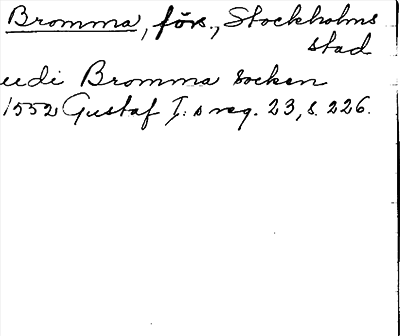 Bromma, förs., Stockholms
stad
udi Bromma socken
1552 Gustaf I:s reg. 23, s. 226.